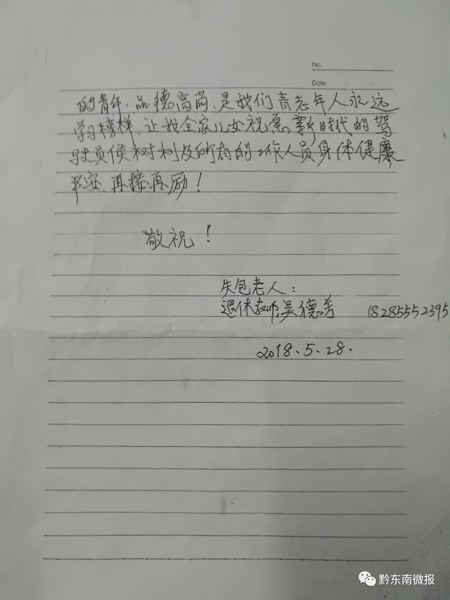 No.
Date
的青年.品德高尚.是我们青老年人永远
学习榜样.让我全家儿女祝愿新时代的驾
驶员侯树利及所有的工作人员身体健康
平安.再接再励！
敬祝！
失包老人：
退休教师吴德芳 18285552395
2018.5.28.
黔东南微报